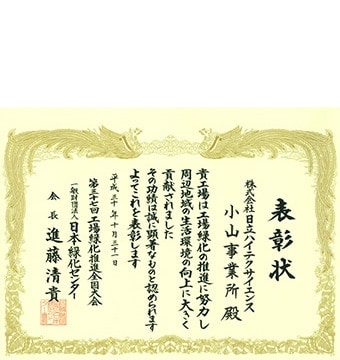 表彰状
株式会社日立ハイテクサイエンス
小山事業所 殿
貴工場は工場緑化の推進に努力し
周辺地域の生活環境の向上に大きく
貢献されました
その功績は誠に顕著なものと認められます
よってこれを表彰します
平成三十年十月三十一日
第三十七回工場緑化推進全国大会
一般財団法人日本緑化センター
会長 進藤清貴